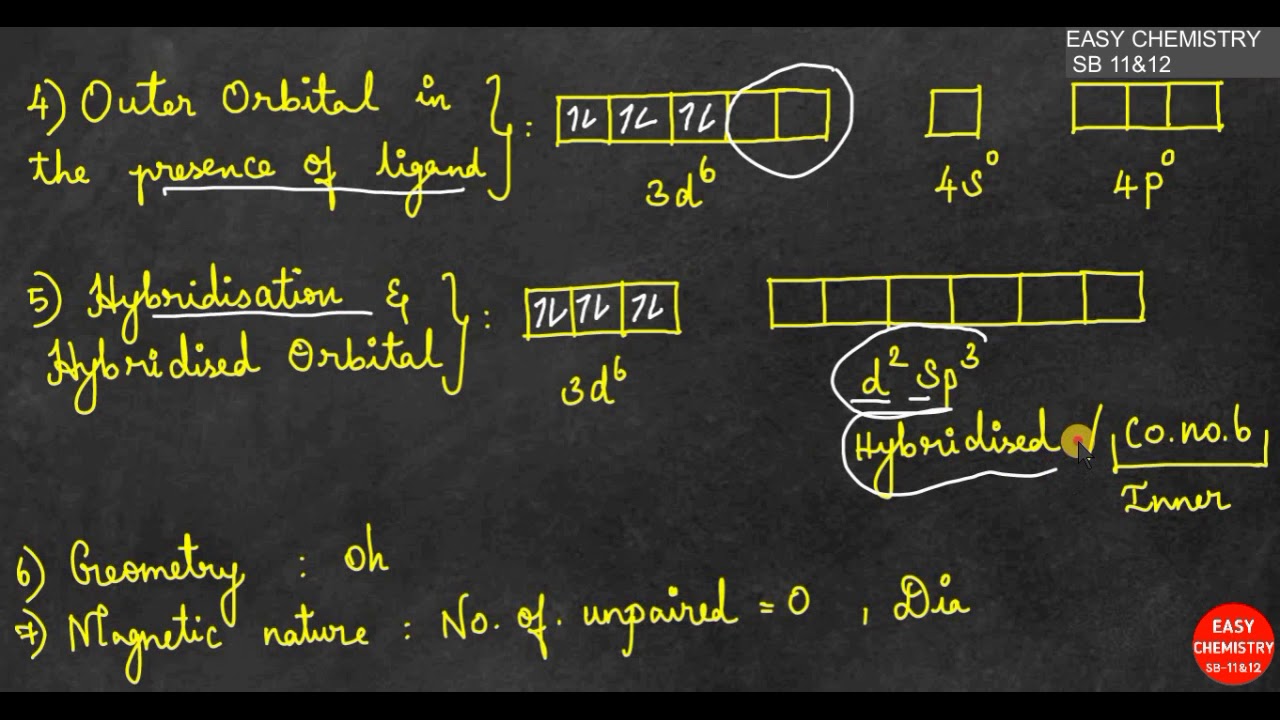 EASY CHEMISTRY
SB 11&12
4) Outer Orbital in
the presence of ligand :
3d⁶ 4s⁰ 4p⁰
5) Hybridisation &
Hybridised Orbital :
3d⁶ d²sp³
Hybridised / Co.no.6
Inner
6) Geometry : Oh
7) Magnetic nature : No. of. unpaired = 0 , Dia
EASY
CHEMISTRY
SB-11&12